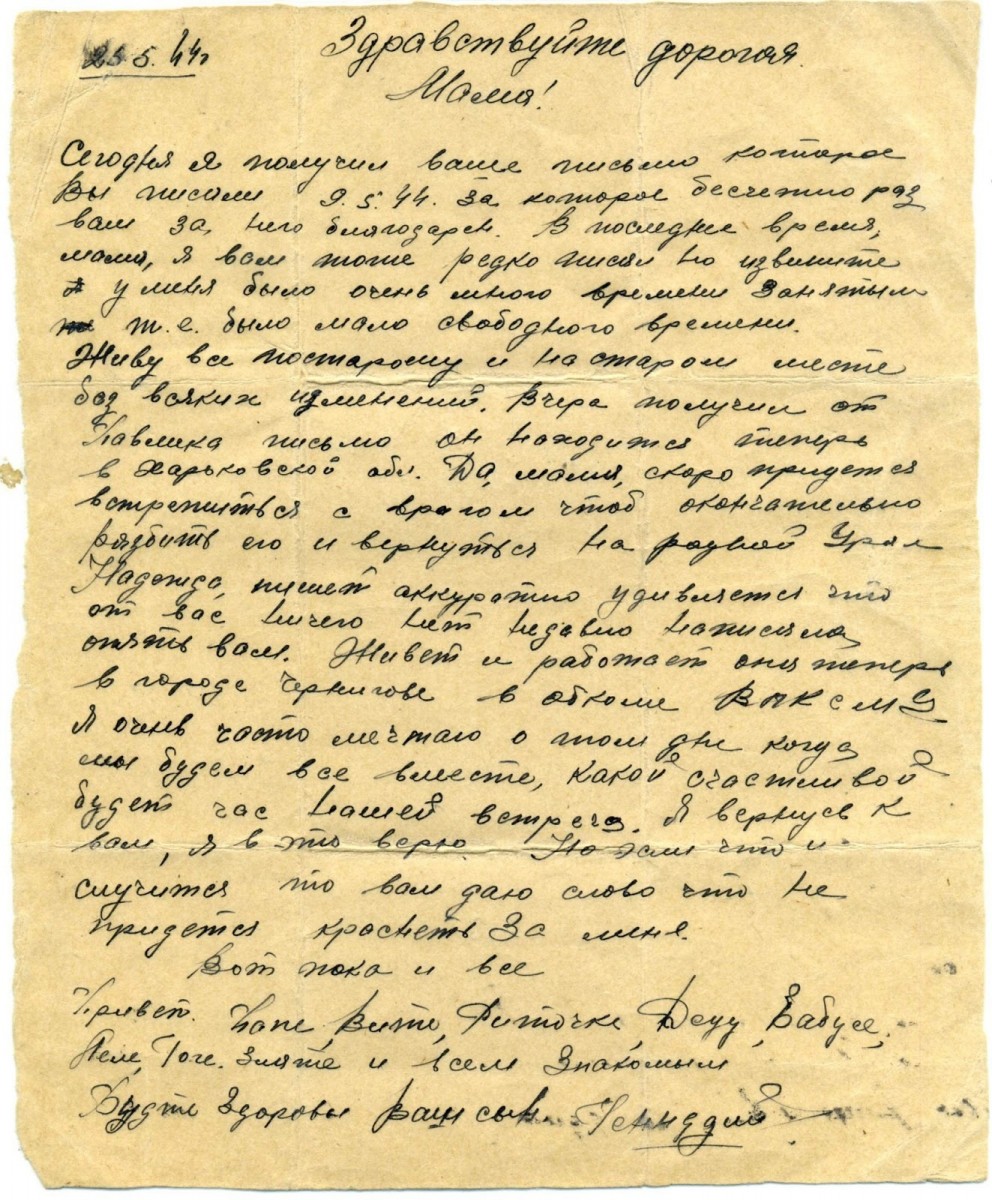 5. 44г Здравствуйте дорогая
Мама!
Сегодня я получил ваше письмо которое
Вы писали 9.5.44. за которое бесчетно раз
вам за него благодарен. В последнее время,
мама, я вам тоже редко писал но извините
у меня было очень много времени занятым
т.е. было мало свободного времени.
Живу все постарому и на старом месте
без всяких изменений. Вчера получил от
Павлика письмо он находится теперь
в Харьковской обл. Да, мама, скоро придется
встретиться с врагом чтоб окончательно
разбить его и вернуться на родной Урал
Надежда, пишет аккуратно удивляется что
от вас ничего нет недавно написала
опять вам. Живет и работает она теперь
в городе Чернигове в обкоме
Я очень часто мечтаю о том дне когда
мы будем все вместе, какой счастливой
будет час нашей встречи. Я вернусь к
вам, я в это верю. Но если что и
случится то вам даю слово что не
придется краснеть за меня.
Вот пока и все
Привет. Папе, Вите, Риточке, Деду, Бабусе,
Гоге. Злате и всем знакомым
Будте здоровы Ваш сын Генаддий